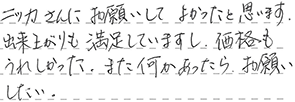 ニッカさんに お願いして よかったと思います.
出来上がりも 満足していますし. 価格も
うれしかった. また何かあったら お願い
したい.